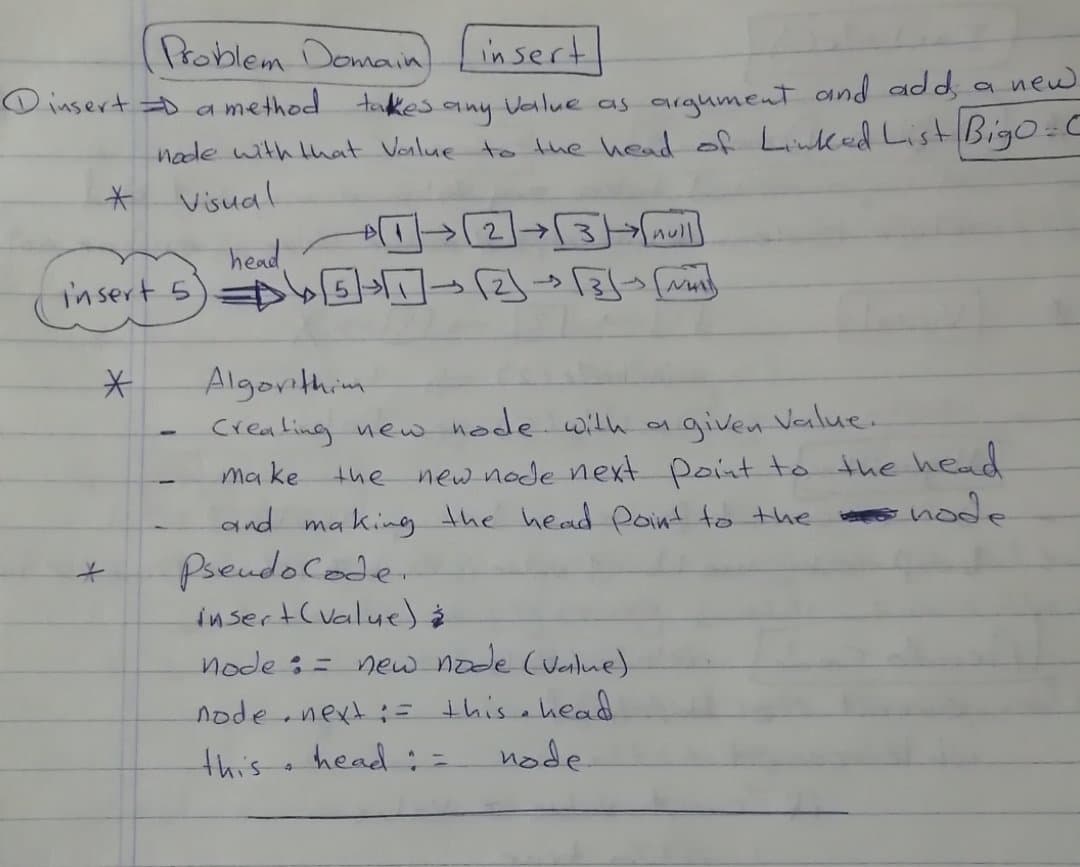 Problem Domain insert
① insert ⇒ a method takes any value as argument and adds a new
node with that Value to the head of Linked List BigO = 
* Visual
1 → 2 → 3 → null
head
insert 5 ⇒ 5 → 1 → 2 → 3 → Null
* Algorithim
- Creating new node with a given Value.
- make the new node next point to the head
- and making the head point to the node
* PseudoCode.
insert(value) :
node := new node (value)
node.next := this.head
this.head := node